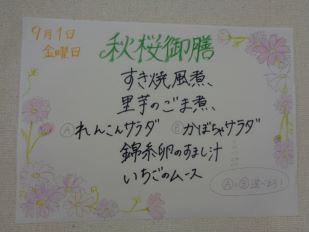 9月1日
金曜日
秋桜御膳
すき焼風煮、
里芋のごま煮、
Ⓐれんこんサラダ Ⓑかぼちゃサラダ
錦糸卵のすまし汁
いちごのムース
ⒶとⒷ選べます!